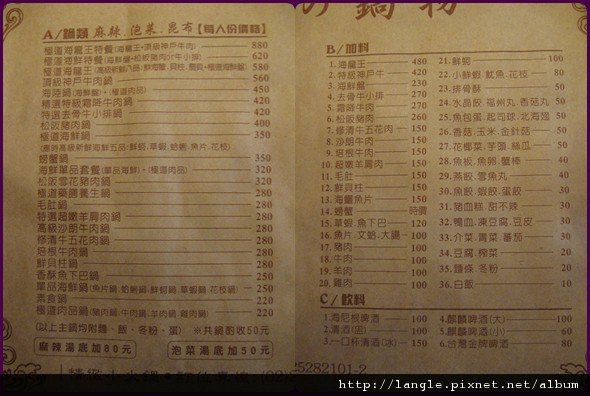 の鍋物
A/鍋類 麻辣.泡菜.昆布【每人份價格】
極道海龍王特餐(海龍王+頂級神戶牛肉) 880
極道海鮮特餐(海鮮盤+松阪豬肉or牛小排) 620
極道海龍王 580
頂級神戶牛肉鍋 560
海陸鍋(海鮮盤)+(極道肉品) 450
精選特級霜降牛肉鍋 420
特選去骨牛小排鍋 420
松阪豬肉鍋 400
極道海鮮鍋 350
螃蟹鍋 350
海鮮單品套餐(單品海鮮)+(極道肉品) 320
松阪雪花豬肉鍋 320
極道藥膳養生鍋 280
毛肚鍋 280
特選超嫩羊肩肉鍋 280
高級沙朗牛肉鍋 280
修清牛五花肉鍋 280
培根牛肉鍋 280
鮮貝柱鍋 280
香酥魚下巴鍋 250
單品海鮮鍋(魚片鍋、蛤蜊鍋、鮮蚵鍋、草蝦鍋、花枝鍋) 250
素食鍋 220
極道肉品鍋(豬肉鍋、牛肉鍋、羊肉鍋、雞肉鍋) 220
(以上主鍋均附麵、飯、冬粉、蛋) ※共鍋酌收50元
麻辣湯底加80元
泡菜湯底加50元
B/加料
1.海龍王 480
2.特級神戶牛 420
3.海鮮盤 230
4.去骨牛小排 270
5.霜降牛肉 270
6.松阪豬肉 260
7.修清牛五花肉 150
8.沙朗牛肉 150
9.培根牛肉 150
10.超嫩羊肩肉 150
11.毛肚 150
12.鮮貝柱 150
13.海鱺魚片 150
14.螃蟹 時價
15.草蝦.魚下巴 120
16.魚片.文蛤.大腸 100
17.豬肉 100
18.牛肉 100
19.羊肉 100
20.雞肉 100
21.鮮蚵 100
22.小鮮蝦.魷魚.花枝 80
23.排骨酥 50
24.水晶餃.福州丸.香菇丸 50
25.魚包蛋.起司球.北海翅 50
26.香菇.玉米.金針菇 50
27.花椰菜.芋頭.絲瓜 50
28.魚板.魚卵.蟹棒 40
29.燕餃.雪魚丸 40
30.魚餃.蝦餃.蛋餃 30
31.豬血糕.甜不辣 30
32.鴨血.凍豆腐.豆皮 30
33.介菜.青菜.番茄 30
34.豆腐.榨菜 20
35.麵條.冬粉 20
36.白飯 10
C/飲料
1.海尼根啤酒 100
2.清酒(溫) 100
3.一口杯清酒(冰) 150
4.麒麟啤酒(大) 100
5.麒麟啤酒(小) 60
6.台灣金牌啤酒 60
25282101-2
http://langle.pixnet.net/album